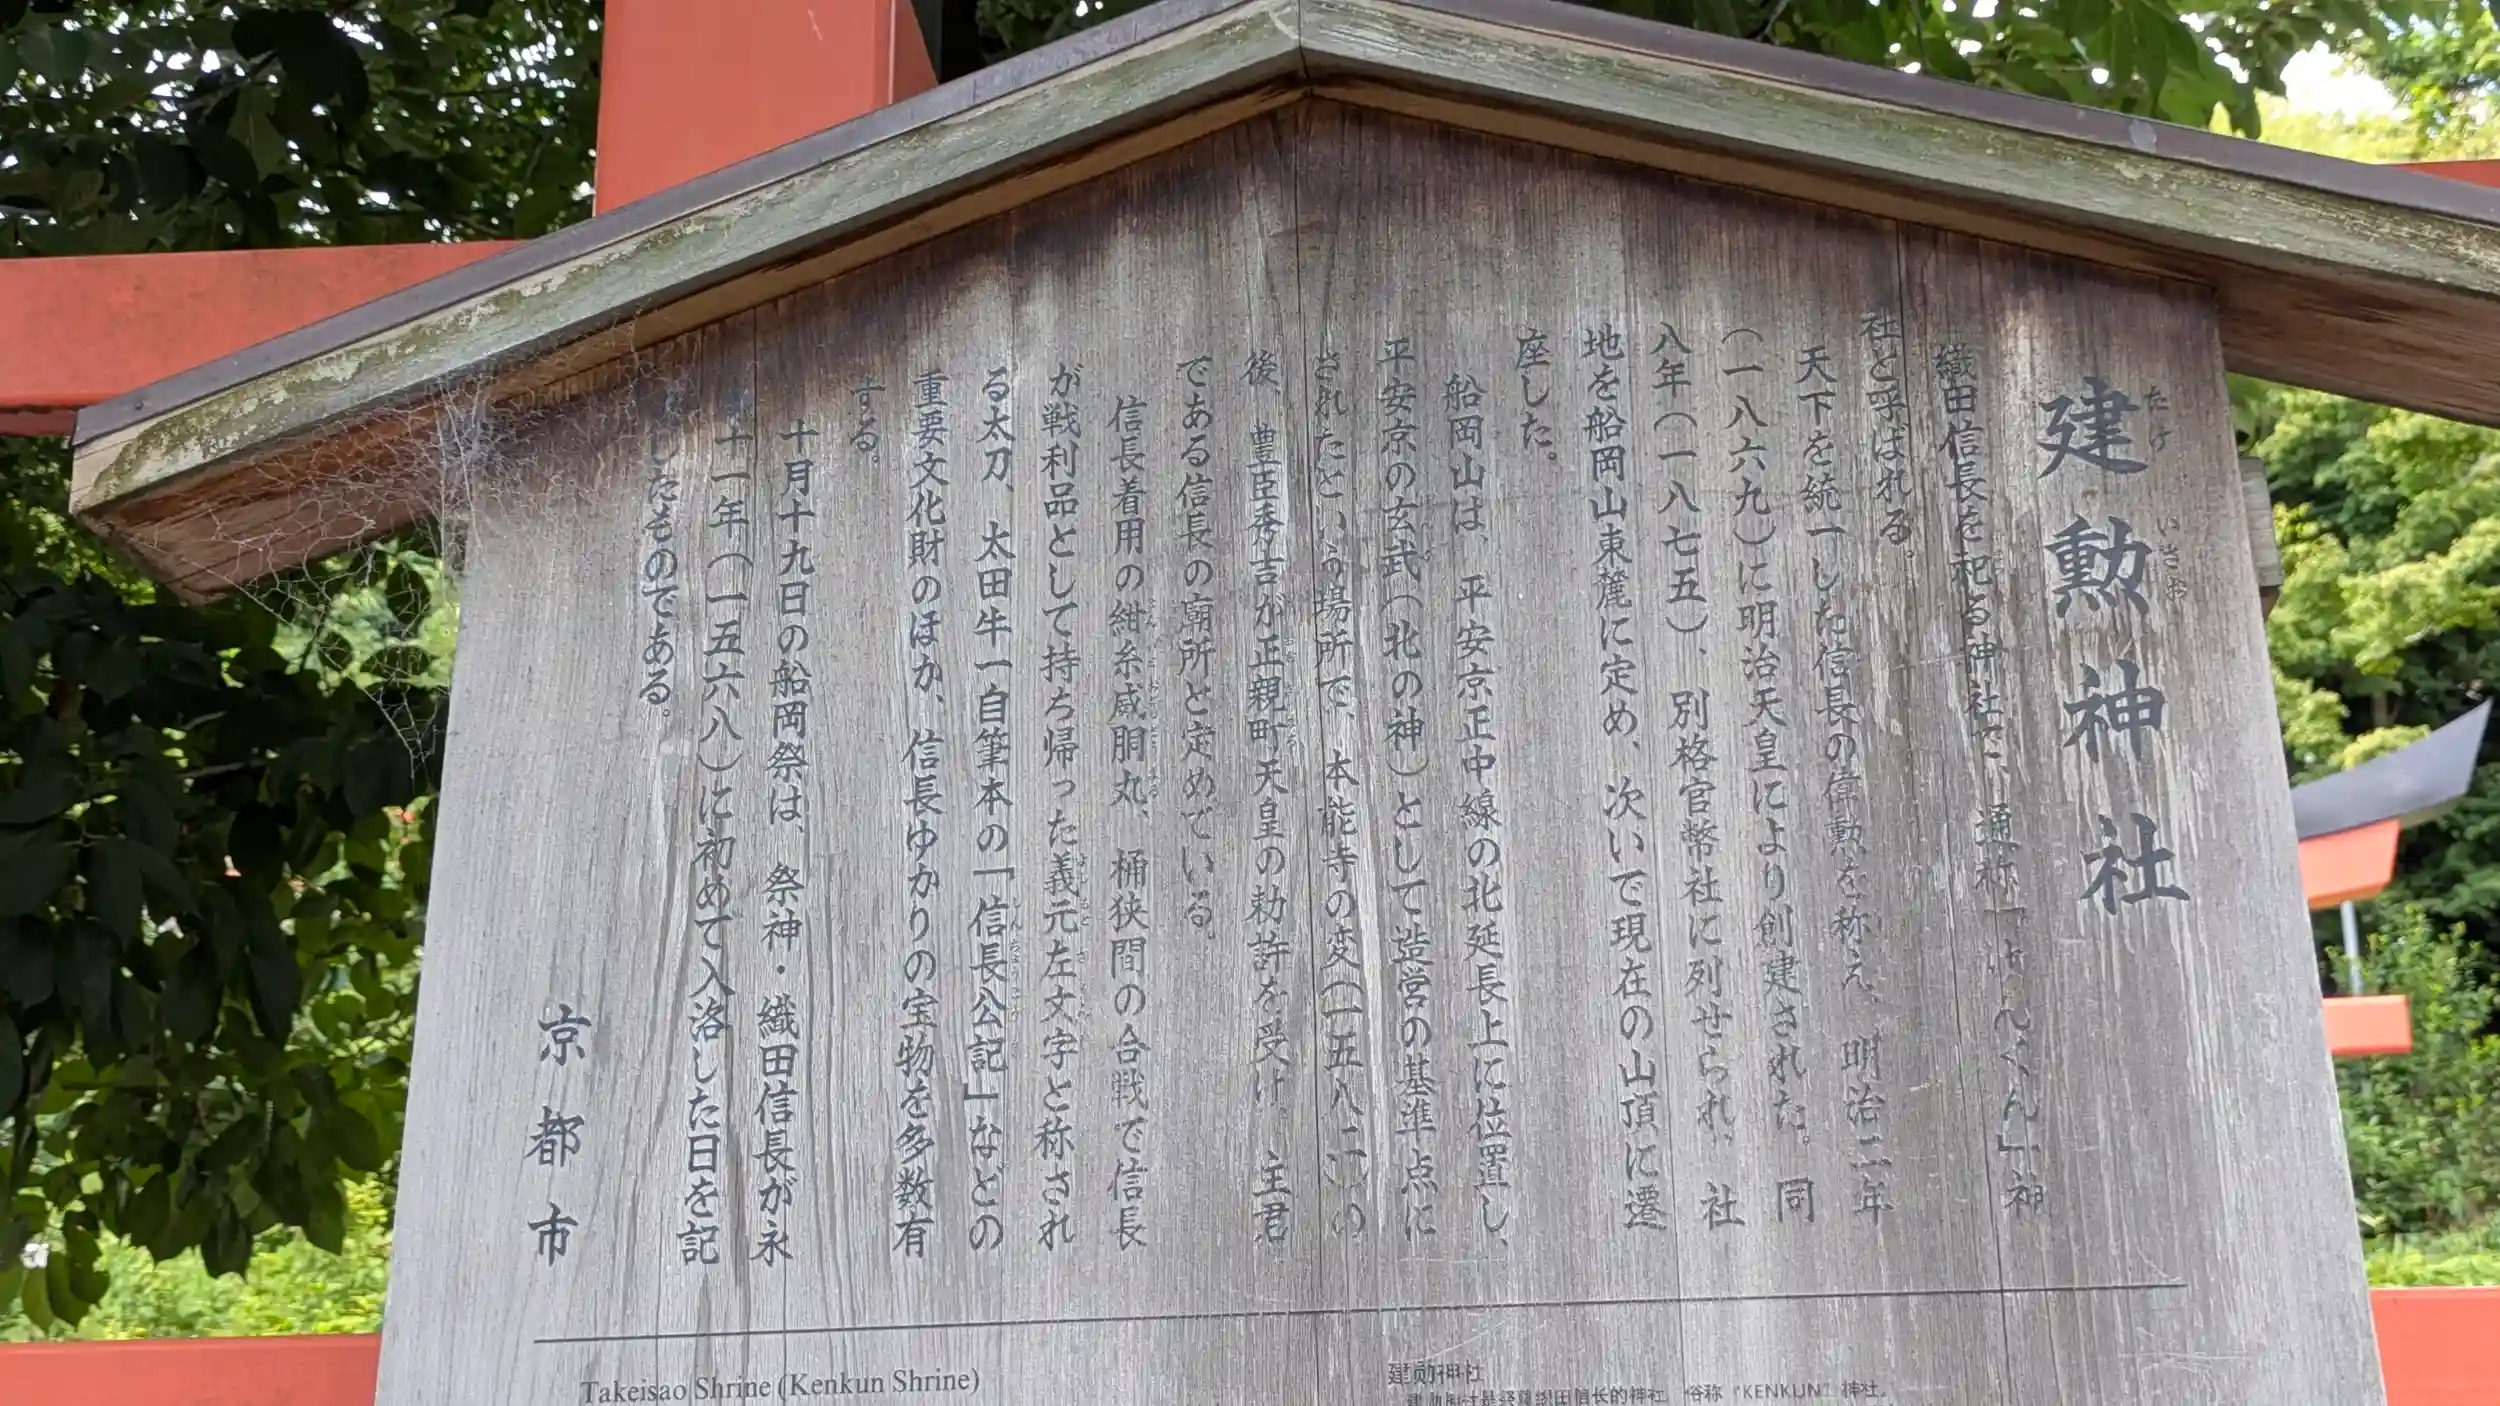 建勲神社
たけ いさお
織田信長を祀る神社で、通称「けんくん」神
社と呼ばれる。
天下を統一した信長の偉勲を称え、明治二年
（一八六九）に明治天皇により創建された。同
八年（一八七五）、別格官幣社に列せられ、社
地を船岡山東麓に定め、次いで現在の山頂に遷
座した。
船岡山は、平安京正中線の北延長上に位置し、
平安京の玄武（北の神）として造営の基準点に
されたという場所で、本能寺の変（一五八二）の
後、豊臣秀吉が正親町天皇の勅許を受け、主君
である信長の廟所と定めている。
信長着用の紺糸威胴丸、桶狭間の合戦で信長
が戦利品として持ち帰った義元左文字と称され
る太刀、太田牛一自筆本の「信長公記」などの
重要文化財のほか、信長ゆかりの宝物を多数有
する。
十月十九日の船岡祭は、祭神・織田信長が永
十一年（一五六八）に初めて入洛した日を記
したものである。
京都市
Takeisao Shrine (Kenkun Shrine)
建勋神社
建勋神社是祭奠织田信长的神社，俗称“KENKUN”神社。